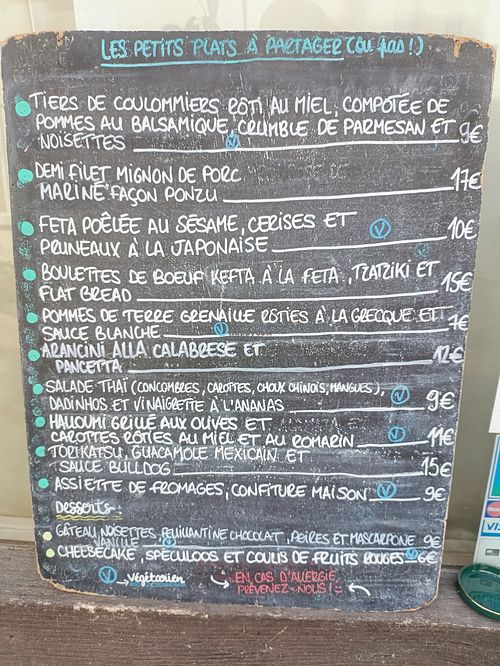 LES PETITS PLATS À PARTAGER (OU pas !)
TIERS DE COULOMMIERS RÔTI AU MIEL, COMPOTÉE DE
POMMES AU BALSAMIQUE, CRUMBLE DE PARMESAN ET
NOISETTES V 9€
DEMI FILET MIGNON DE PORC
MARINÉ FAÇON PONZU 17€
FETA POÊLÉE AU SÉSAME, CERISES ET
PRUNEAUX À LA JAPONAISE V 10€
BOULETTES DE BOEUF KEFTA À LA FETA, TZATZIKI ET
FLAT BREAD 15€
POMMES DE TERRE GRENAILLE RÔTIES À LA GRECQUE ET
SAUCE BLANCHE V 7€
ARANCINI ALLA CALABRESE ET
PANCETTA 12€
SALADE THAÏ (CONCOMBRES, CAROTTES, CHOUX CHINOIS, MANGUES),
DADINHOS ET VINAIGRETTE À L'ANANAS V 9€
HALOUMI GRILLÉ AUX OLIVES ET
CAROTTES RÔTIES AU MIEL ET AU ROMARIN V 11€
TORI KATSU, GUACAMOLE MEXICAIN ET
SAUCE BULLDOG 15€
ASSIETTE DE FROMAGES, CONFITURE MAISON V 9€
Desserts :
GÂTEAU NOISETTES, FEUILLANTINE CHOCOLAT, POIRES ET MASCARPONE
VANILLE V 9€
CHEESECAKE, SPÉCULOOS ET COULIS DE FRUITS ROUGES V 6€
V → Végétarien
EN CAS D'ALLERGIE,
PRÉVENEZ-NOUS !